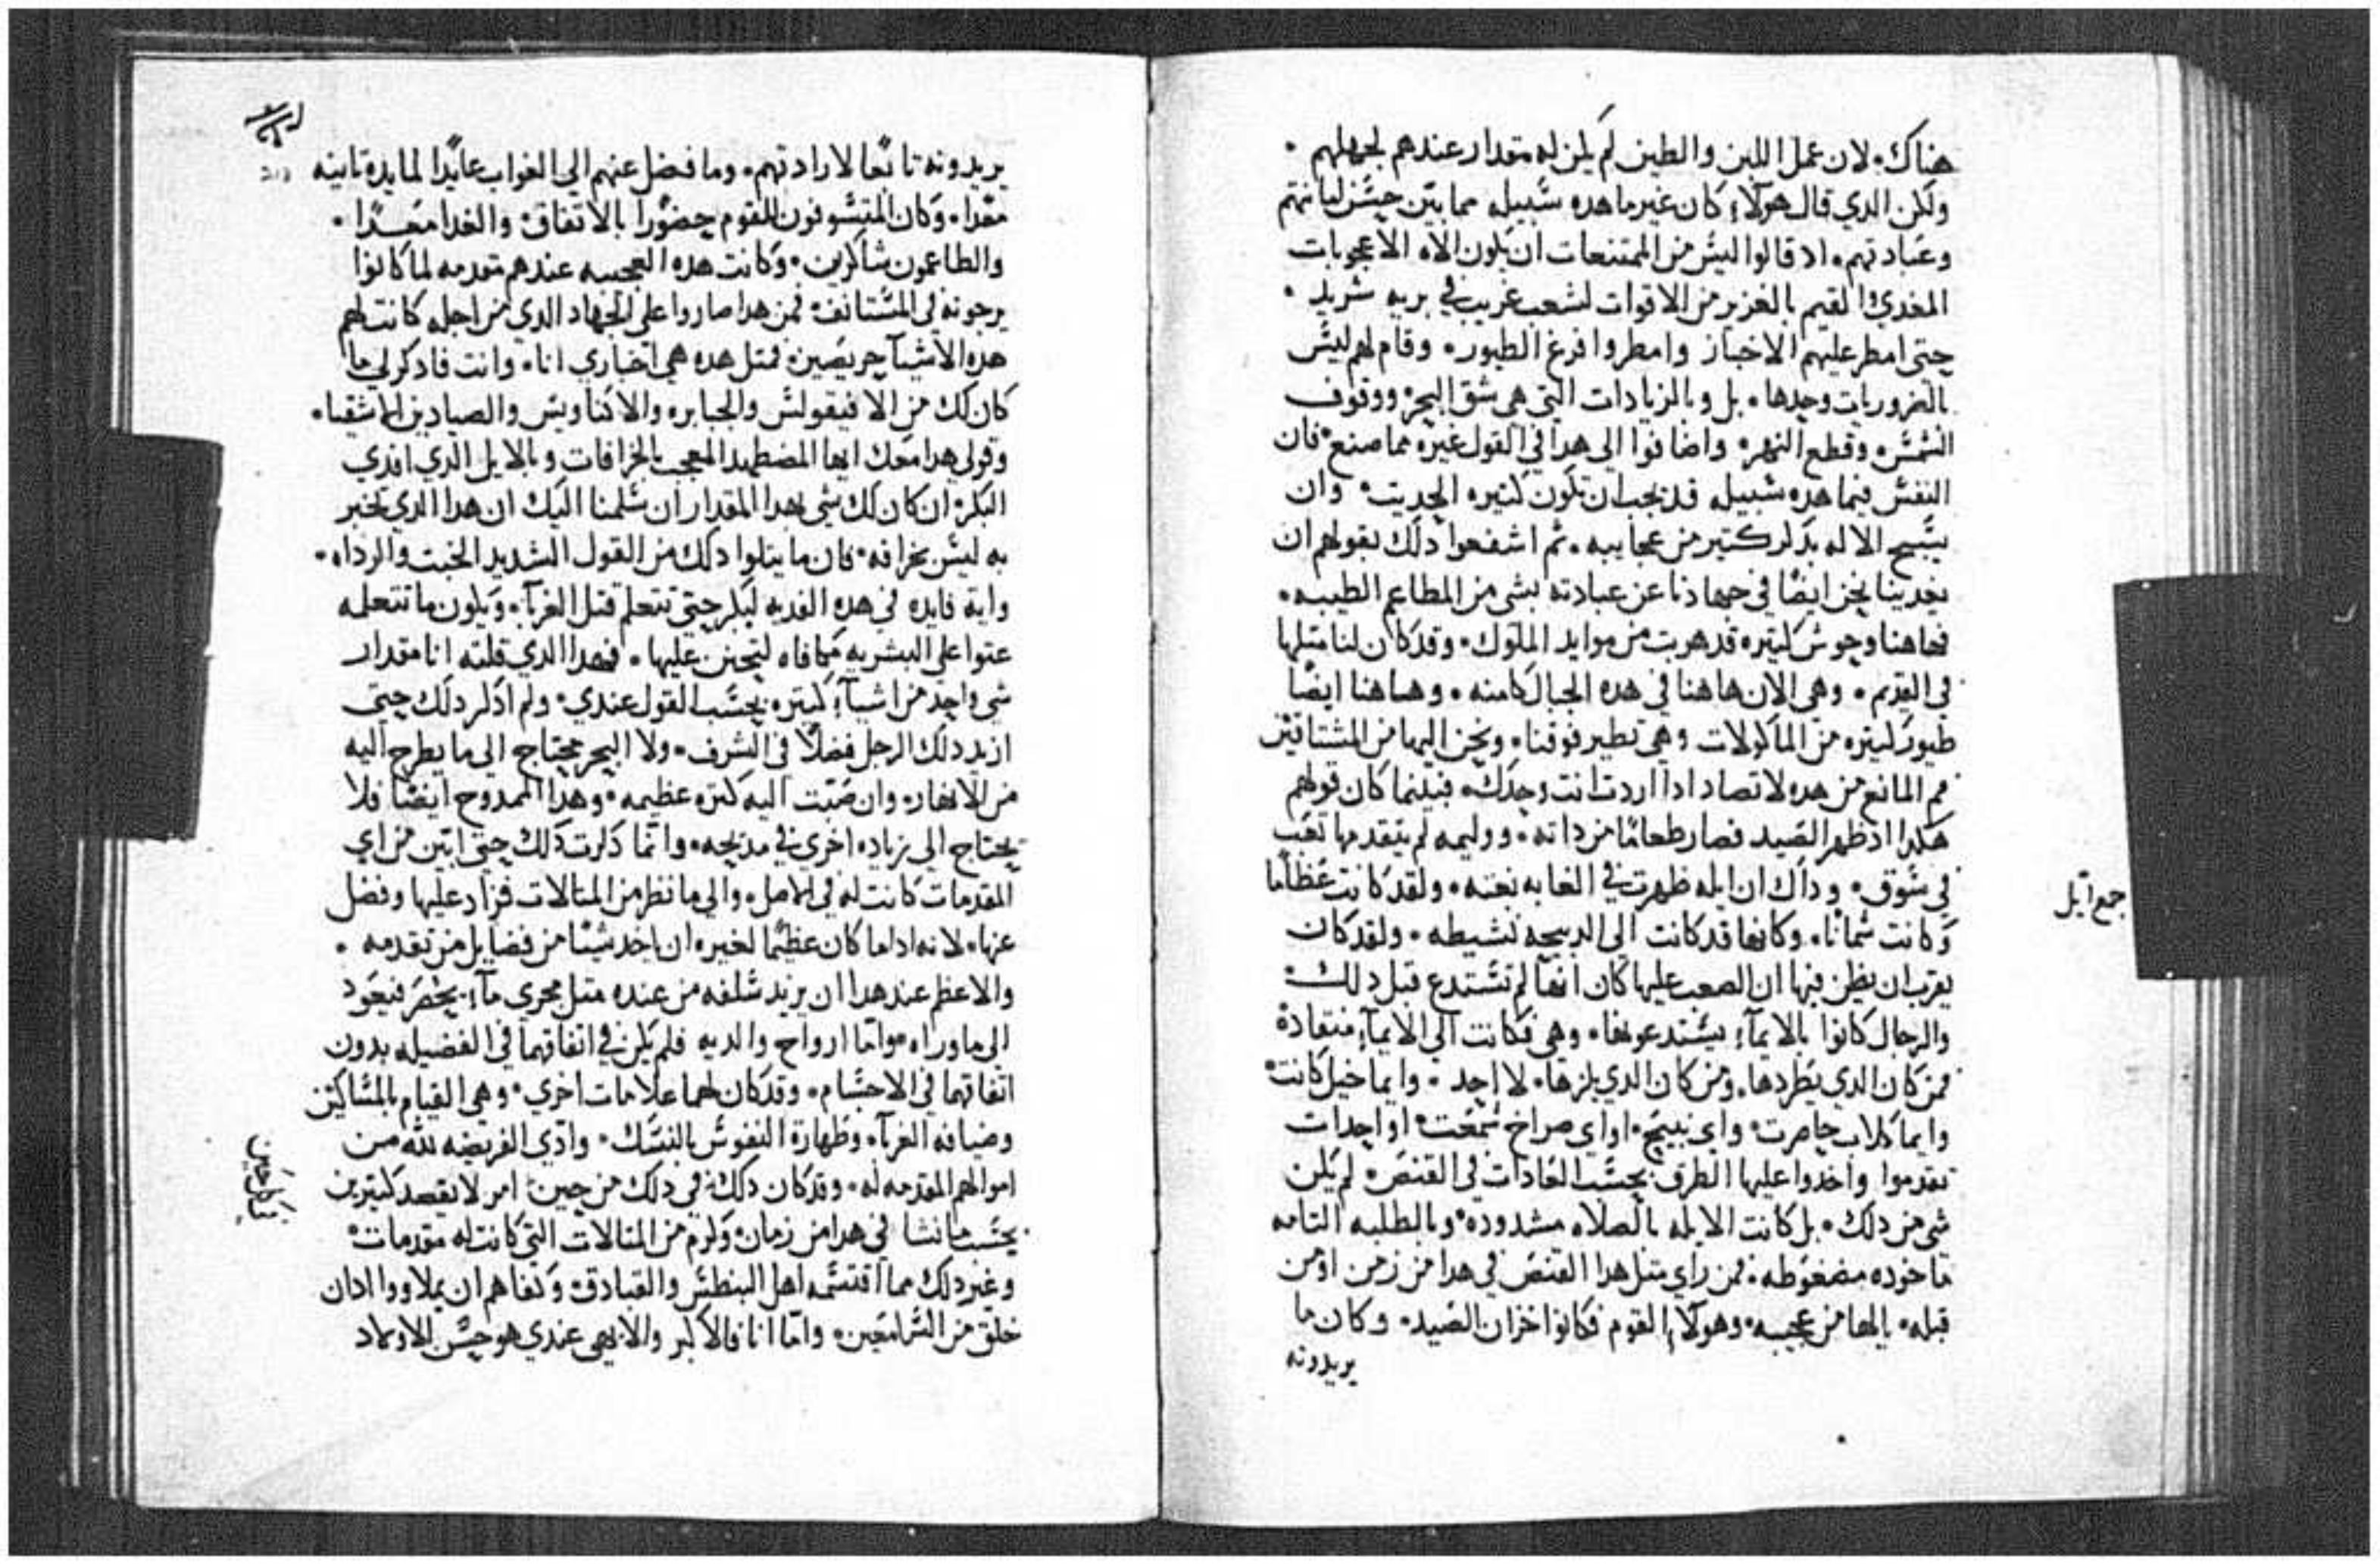 هناك. لان عمل اللبن والطين لم يكن له مقدار عندهم لجهلهم.
ولكن الدي قال هولاء كان غير ما هده سبيله مما بين حسن ليانتهم
وعبادتهم. اد قالوا ليس من الممتنعات ان يكون الاه الاعجوبات
المغدي القيم بالغزير من الاقوات لشعب غريب في بريه شريد.
حتى امطر عليهم الاخباز وامطروا فرغ الطيور. وقام لهم ليس
بالضروريات وحدها. بل وبالزيادات التي هي شق البحر ووقوف
الشمس وقطع النهر. واضافوا الى هدا في القول غيره مما صنع. فان
النفس فيما هده سبيله قد يجب ان تكون كتيره الحديت. وان
يسبح الاله بدكر كتير من عجايبه. تم اشفعوا دلك بقولهم ان
يغدينا نحن ايضا في جهادنا عن عبادته بشي من المطاعم الطيبه.
فهاهنا وحوش كتيره قد هربت من موايد الملوك. وقد كان لنا متلها
في القديم. وهي الان هاهنا في هده الجبال كامنه. وهاهنا ايضا
طيور كتيره من الماكولات وهي تطير فوقنا. ونحن اليها من المشتاقين
فم المانع من هده لا تصاد ادا اردت انت وحدك. فبينما كان قولهم
هكدا اد ظهر الصيد فصار طعاما من داته. ووليمه لم يتقدمها تعب
في سوق. وداك ان ايله ظهرت في الغابه بغته. ولقد كانت عظاما
وكانت سمانا. وكانها قد كانت الى الدبيحه نشيطه. ولقد كان
يقرب ان يظن فيها ان الصعب عليها كان انها لم تستدع قبل دلك
والرجال كانوا بالايماء يستدعونها. وهي فكانت الى الايماء منقادة
فمن كان الدي يطردها. ومن كان الدي يلزها. لا احد. وايما خيل كانت
وايما كلاب حاصرت. واي نبيح. او اي صراخ سمعت. او احدات
تقدموا واخدوا عليها الطرق بحسب العادات في القنص. لم يكن
شي من دلك. بل كانت الايله بالصلاه مشدوده. وبالطلبه التامه
ماخوده مضغوطه. فمن راي متل هدا القنص في هدا من زمن او من
قبله. يالها من عجيبه. وهولاء القوم فكانوا خزان الصيد. وكان ما
يريدونه
جمع ايل
يريدونه تابعا لارادتهم. وما فضل عنهم الى الغواب عايدا لمايده تانيه
معدا. وكان المتشوفون للقوم حضورا بالاتفاق. والغدا معدا.
والطاعمون شاكرين. وكانت هده العجيبه عندهم متقدمه لما كانوا
يرجونه في المستانف. فمن هدا صاروا على الجهاد الدي من اجله كانت لهم
هده الاشيآ حريصين. فمتل هده هي اخباري انا. وانت فادكر لي ما
كان لك من الافيقولس والجبابره والاكتاونيس والصيادين الاشقيا.
وقولي هدا معك ايها المضطهد المعجب بالخرافات وبالايل الدي افدي
البكر. ان كان لك شي بهدا المقدار ان سلمنا اليك ان هدا الدي تخبر
به ليس بخرافه. فان ما يتلوا دلك من القول الشديد الخبت والرداه.
واية فايده في هده الفديه لبكر حتى تتعلم قتل الغربآ. ويكون ما تتعلمه
عتوا على البشريه مكافاه لتحنن عليها. فهدا الدي قلته انا مقدار
شي واحد من اشيآ كتيره. بحسب القول عندي. ولم ادكر دلك حتى
ازيد دلك الرجل فضلا في الشرف. ولا البحر محتاج الى ما يطرح اليه
من الانهار. وان صبت اليه كتره عظيمه. وهدا الممدوح ايضا فلا
يحتاج الى زياده اخرى في مديحه. وانما دكرت دلك حتى ابين من اي
المقدمات كانت له في الاصل. والى ما نظر من المتالات فزاد عليها وفضل
عنها. لانه اداما كان عظيما لغيره ان ياخد شيئا من فضايل من تقدمه.
والاعظم عند هدا ان يزيد سلفه من عنده متل مجري مآ. يحصر فيعود
الى ما وراه. واما ازواج والديه فلم يكن في اتفاقهما في الفضيله بدون
اتفاقهما في الاحسام. وقد كان لهما علامات اخري. وهي القيام بالمساكين
وضيافه الغربآ. وطهارة النفوس بالنسك. وادي الفريضه لله من
اموالهم المقدمه له. وقد كان دلك في دلك من حين امر لا يقصد كتيرين
بحسب ما نشا في هدا من زمان. وكرم من المتالات التي كانت له مقدمات.
وغير دلك مما اقتسمه اهل البنطس والقبادق. وكفاهم ان يملاووا ادان
خلق من السامعين. واما انا فالاكبر والابهى عندي هو حسن الاولاد